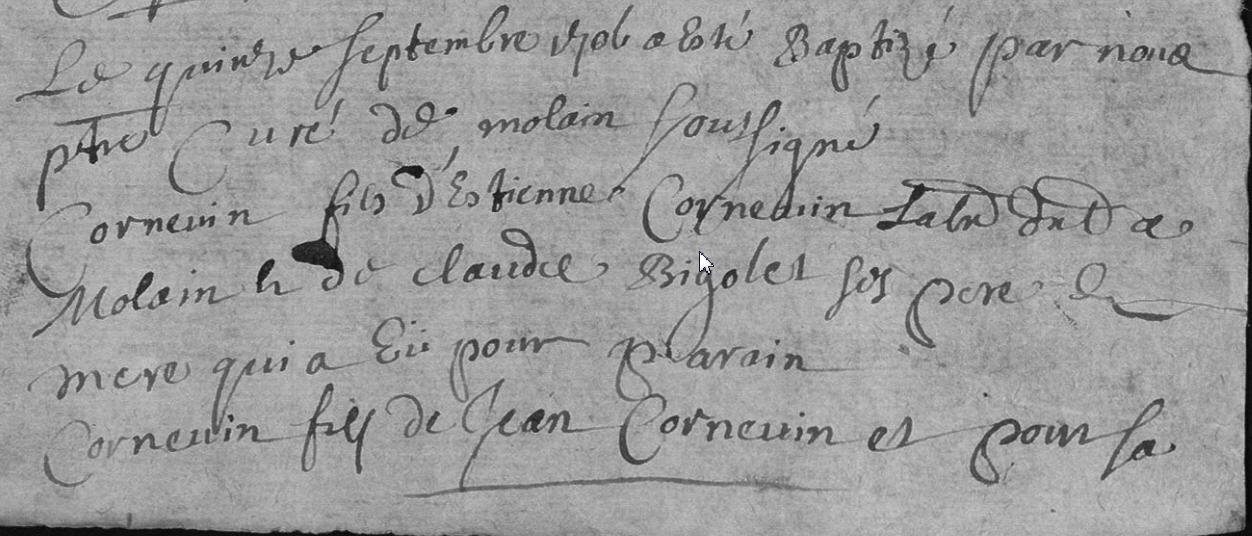 Le quinze septembre 1706 a Esté Baptizé par nous
ptre Curé de molain soussigné
Cornevin fils d'Estienne Cornevin Labr dnt a
Molain & de claude Bigolet ses pere &
mere qui a Eü pour parain
Cornevin fils de Jean Cornevin et pour sa